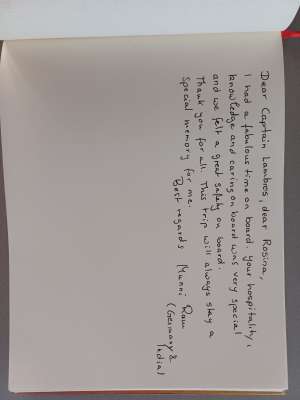 Dear Captain Lambros, dear Rosina,
I had a fabulous time on board. Your hospitality,
knowledge and caring on board was very special
and we felt a great safety on board.
Thank you for all. This trip will always stay a
special memory for me.
Best regards Munni Ram
(Germany &
India)